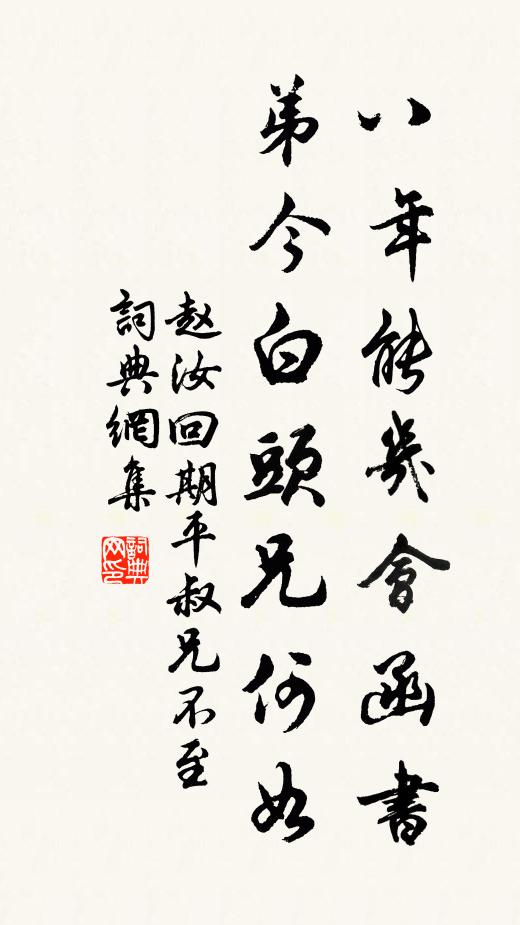 八年能幾會函書
弟今白頭兄何如
赵汝回期平叔兄不至
詞典網集
詞典网印